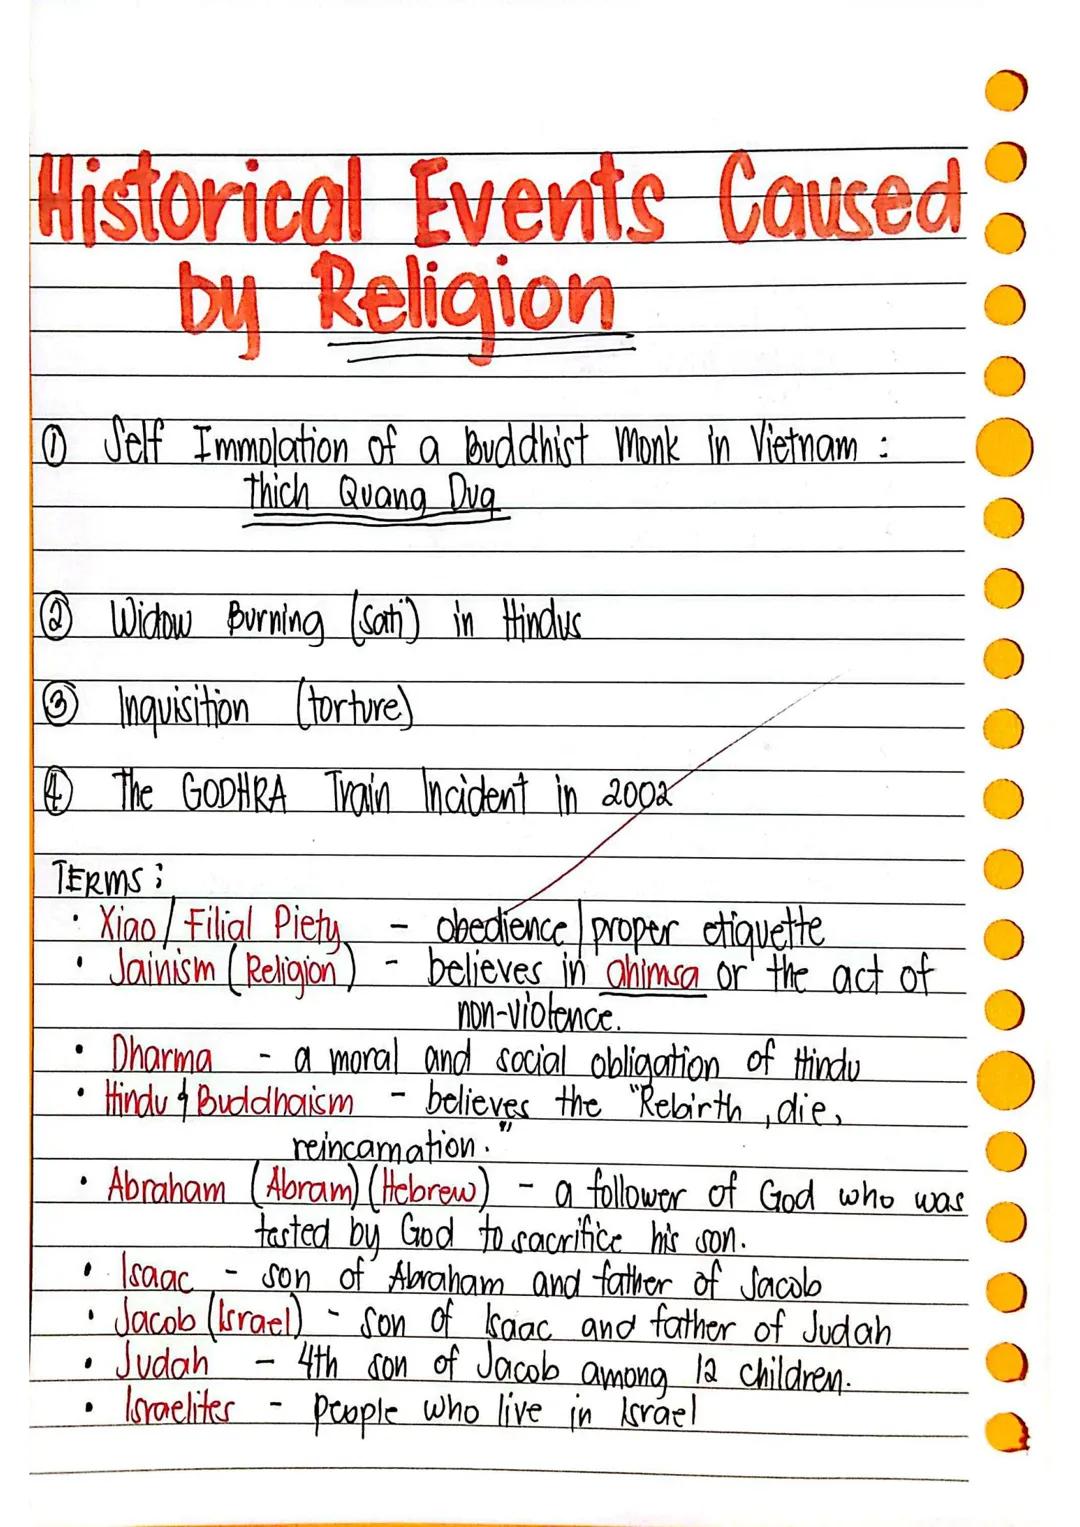 Historical Events Caused
by Religion
① Self Immolation of a Buddhist Monk in Vietnam :
Thich Quang Duq
② Widow Burning (sati) in Hindus
③ Inquisition (torture)
④ The GODHRA Train Incident in 2002
TERMS :
• Xiao / Filial Piety - obedience / proper etiquette
• Jainism (Religion) - believes in ahimsa or the act of
non-violence.
• Dharma - a moral and social obligation of Hindu
• Hindu & Buddhaism - believes the "Rebirth, die,
reincarnation."
• Abraham (Abram) (Hebrew) - a follower of God who was
tested by God to sacrifice his son.
• Isaac - son of Abraham and father of Jacob
• Jacob (Israel) - son of Isaac and father of Judah
• Judah - 4th son of Jacob among 12 children.
• Israelites - people who live in Israel